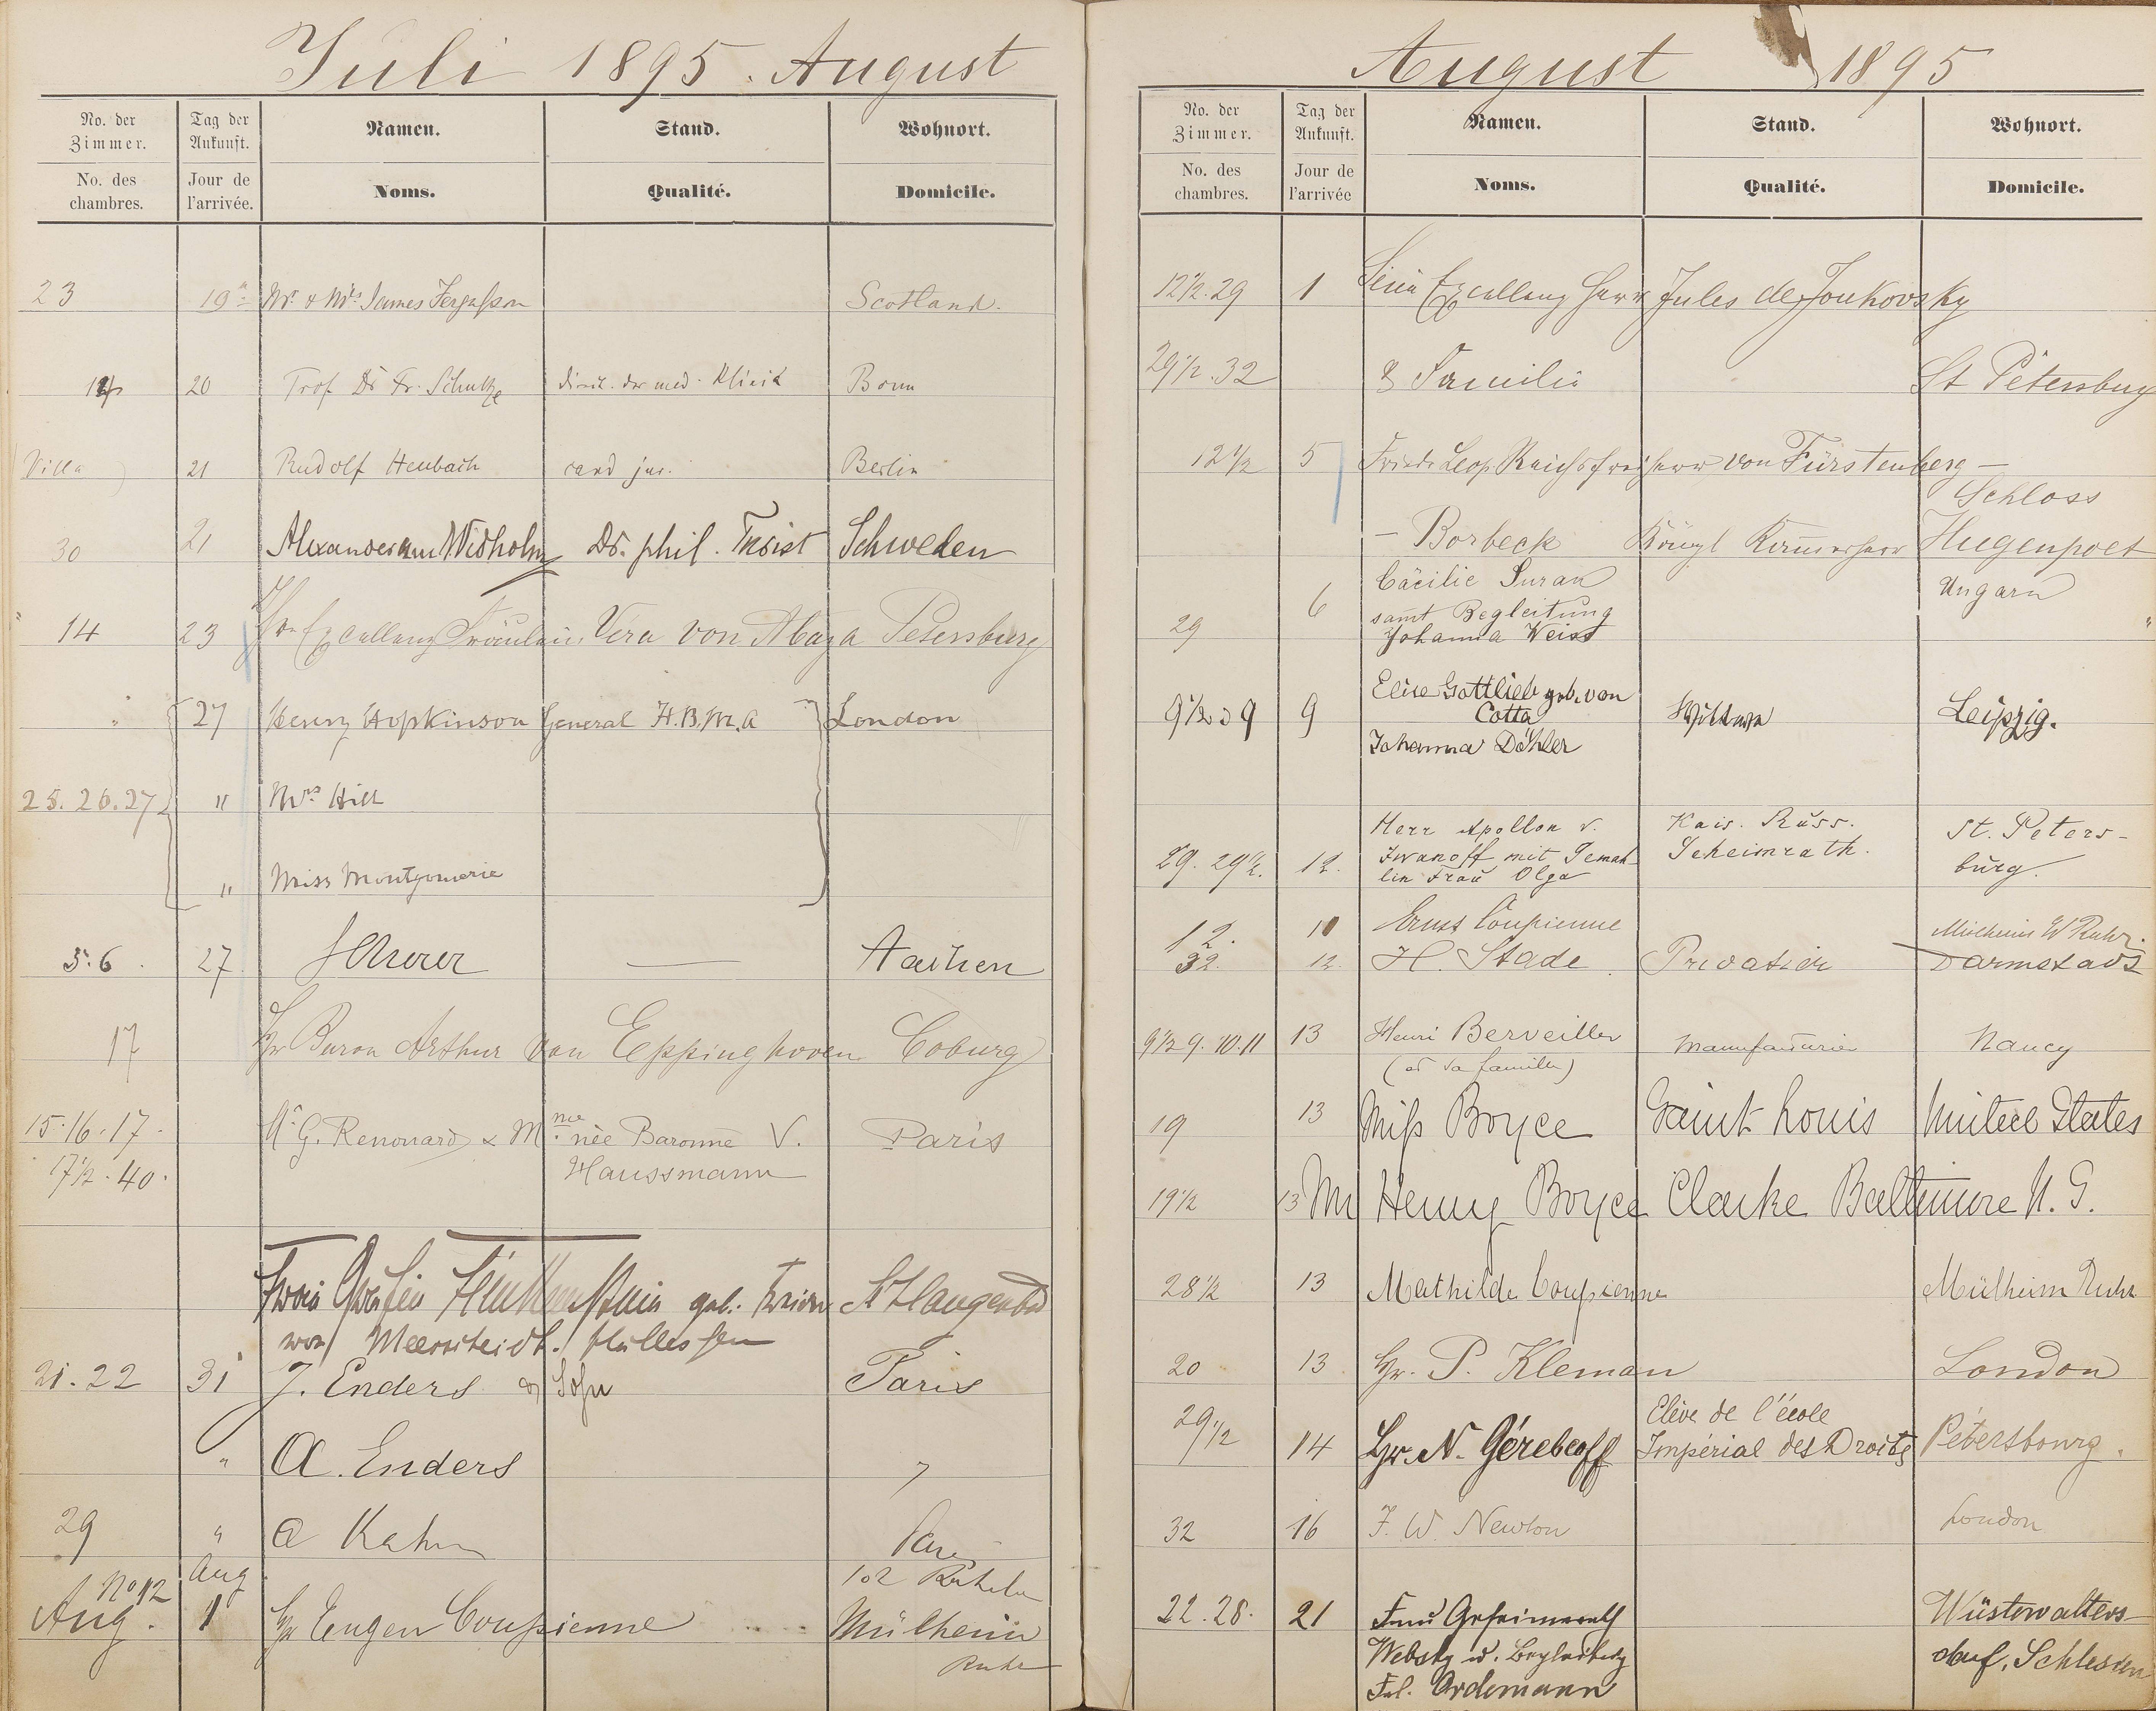 Juli 1895. August
No. der Zimmer. Tag der Ankunft. Namen. Stand. Wohnort.
No. des chambres. Jour de l'arrivée. Noms. Qualité. Domicile.
23 19 Mr & Mrs James Fergusson Scotland.
14 20 Prof Dr Fr. Schultze Direct. der med. Klinik Bonn
Villa 21 Rudolf Heubach cand jur. Berlin
30 21 Alexander Widholm Dr. phil. Schweden
14 23 Excellenz Fräulein Vera von Abaza Petersburg
27 Henry Hopkinson General H.B.M.A London
25. 26. 27 " Mrs Hill
" Miss Montgomerie
5. 6. 27 — Aachen
17 Hr Baron Arthur von Eppinghoven Coburg
15. 16. 17. Mr G. Renouard & Mme née Baronne V. Paris
17 1/2. 40. Haussmann
Frau Gräfin geb. Schlangenbad
von Meerscheidt. Hüllessem
21. 22 31 J. Enders & Sohn Paris
" A. Enders "
29 " A Kahn Paris
No 12 Aug 102
Aug. 1 Hr Eugen Coupienne Mülheim
Ruhr
August 1895
No. der Zimmer. Tag der Ankunft. Namen. Stand. Wohnort.
No. des chambres. Jour de l'arrivée Noms. Qualité. Domicile.
12 1/2. 29 1 Seine Excellenz Herr Jules de Joukovsky
29 1/2. 32 & Familie St Petersburg
12 1/2 5 Friedr. Leop. Reichsfreiherr von Fürstenberg —
Schloss
— Borbeck Königl Kammerherr Hugenpoet
6 Cäcilie Suran Ungarn
samt Begleitung
29 Johanna Weiss "
Elise Gottlieb geb. von
9 1/2 & 9 9 Cotta Wittwe Leipzig.
Johanna Döhler
Herr Apollon v. Kais. Russ. St. Peters-
29. 29 1/2. 12. Iwanoff mit Gemah- Geheimrath. burg.
lin Frau Olga
12. 10 Ernst Coupienne Mülheim Ruhr.
32. 12. H. Stade Privatier Darmstadt
9 1/2 9. 10. 11 13 Henri Berveiller Manufacturier Nancy
(et sa famille)
19 13 Miss Boyce Saint Louis United States
19 1/2 13 Mr Henry Boyce Clarke Baltimore U. S.
28 1/2 13 Mathilde Coupienne Mülheim Ruhr
20 13 Hr. P. Kleman London
29 1/2 Elève de l'école
14 Hr. N. Gérebtzoff Impérial des Droits Pétersbourg.
32 16 F. W. Newton London
22. 28. 21 Frau Geheimrath Wüstewalters-
Websky u. Begleitung dorf, Schlesien
Frl. Ordemann